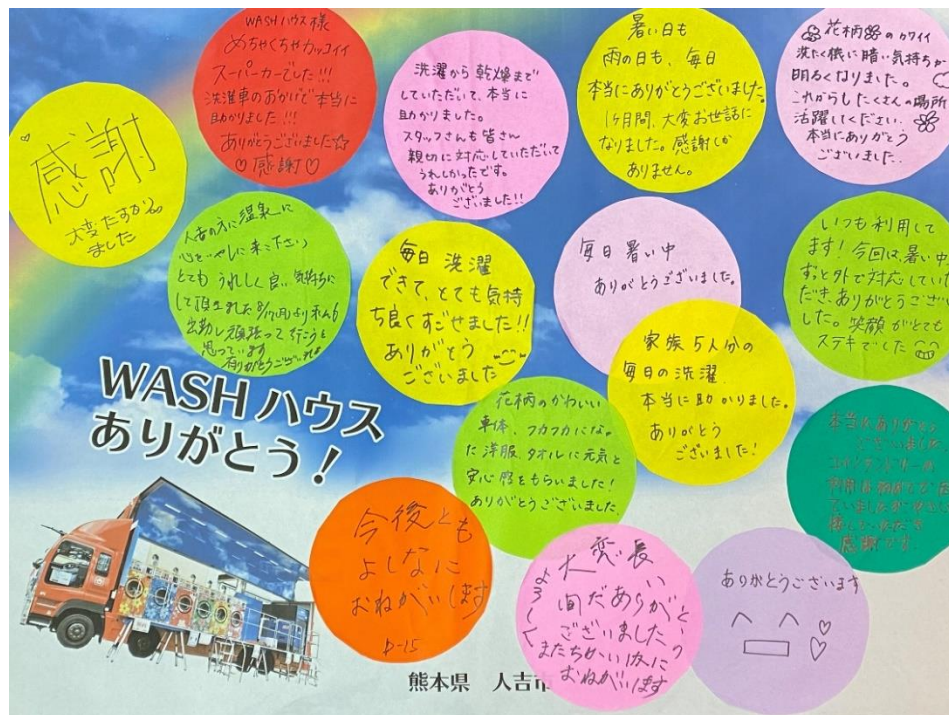 感謝
大変たすかり
ました
WASHハウス様
めちゃくちゃカッコイイ
スーパーカーでした!!!
洗濯車のおかげで本当に
助かりました!!!
ありがとうございました☆
♡感謝♡
洗濯から乾燥まで
していただいて、本当に
助かりました。
スタッフさんも皆さん
親切に対応していただいて
うれしかったです。
ありがとう
ございました!!
暑い日も
雨の日も、毎日
本当にありがとうございました。
1ヶ月間、大変お世話に
なりました。感謝しか
ありません。
花柄のカワイイ
洗たく機に暗い気持ちが
明るくなりました。
これからもたくさんの場所
活躍してください。
本当にありがとう
ございました。
人吉の方に温泉に
心をいやしに来て下さい
とてもうれしく良い気持ちに
して頂きました
出勤し頑張って行こうと
思っています
有りがとうございました
毎日 洗濯
できて、とても気持
ち良くすごせました!!
ありがとう
ございました
毎日暑い中
ありがとうございました。
いつも利用して
ます!今回は、暑い中
ずっと外で対応していた
だき、ありがとうござい
した。笑顔がとても
ステキでした
家族5人分の
毎日の洗濯
本当に助かりました。
ありがとう
ございました!
花柄のかわいい
車体、フカフカになっ
た洋服、タオルに元気と
安心感をもらいました!
ありがとうございました
本当にありがとう
ございました
感謝です。
WASHハウス
ありがとう!
今後とも
よしなに
おねがいします
D-15
大変長い
間だありがとう
ございました、
またちかい内に
よろしく
おねがいします
ありがとうございます
熊本県 人吉市